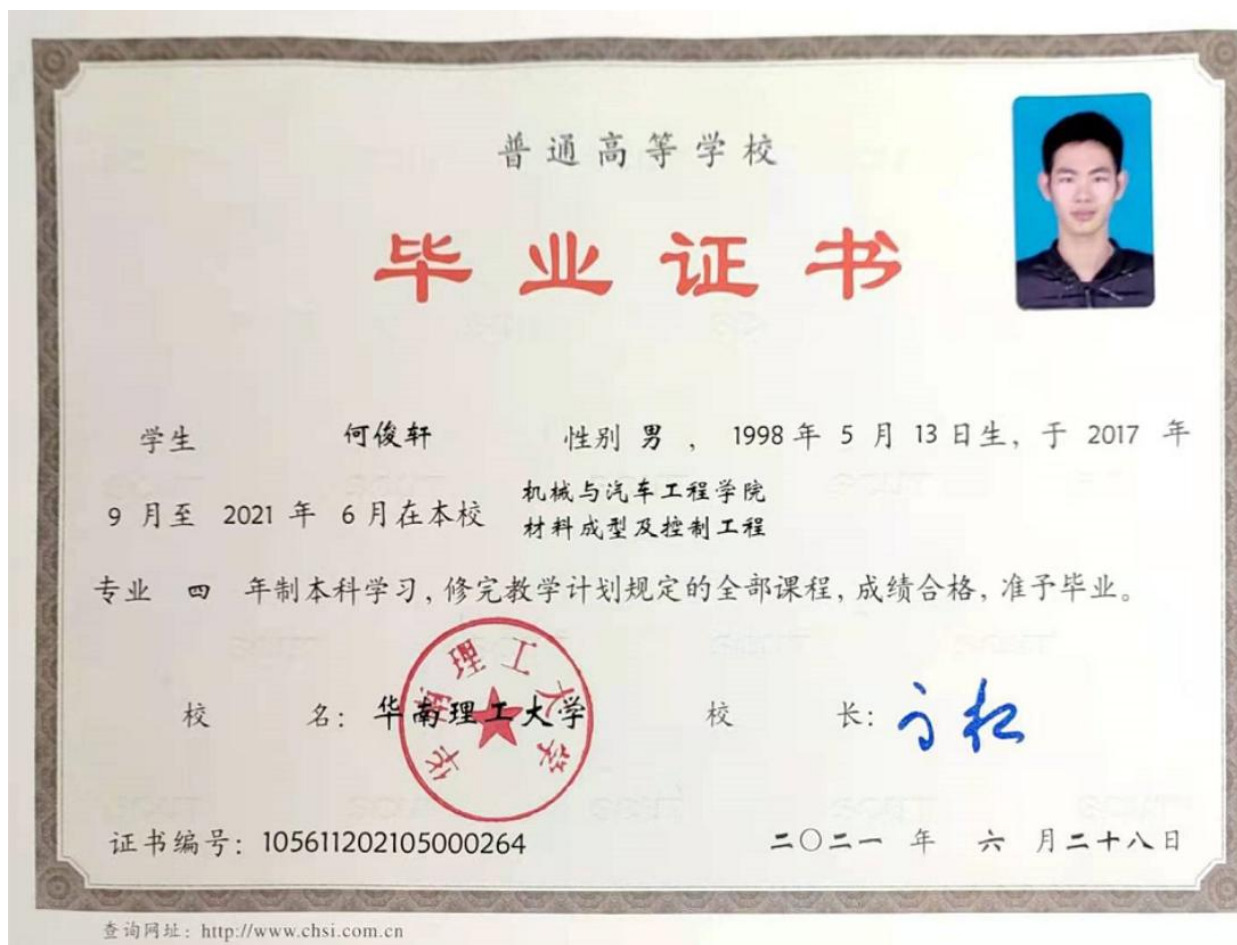 普通高等学校
毕业证书
学生 何俊轩 性别 男 , 1998 年 5 月 13 日生, 于 2017 年
9 月至 2021 年 6 月在本校 机械与汽车工程学院
材料成型及控制工程
专业 四 年制本科学习, 修完教学计划规定的全部课程, 成绩合格, 准予毕业。
华南理工大学
校 名: 华南理工大学 校 长:
证书编号: 105611202105000264 二〇二一 年 六 月二十八日
查询网址: http://www.chsi.com.cn